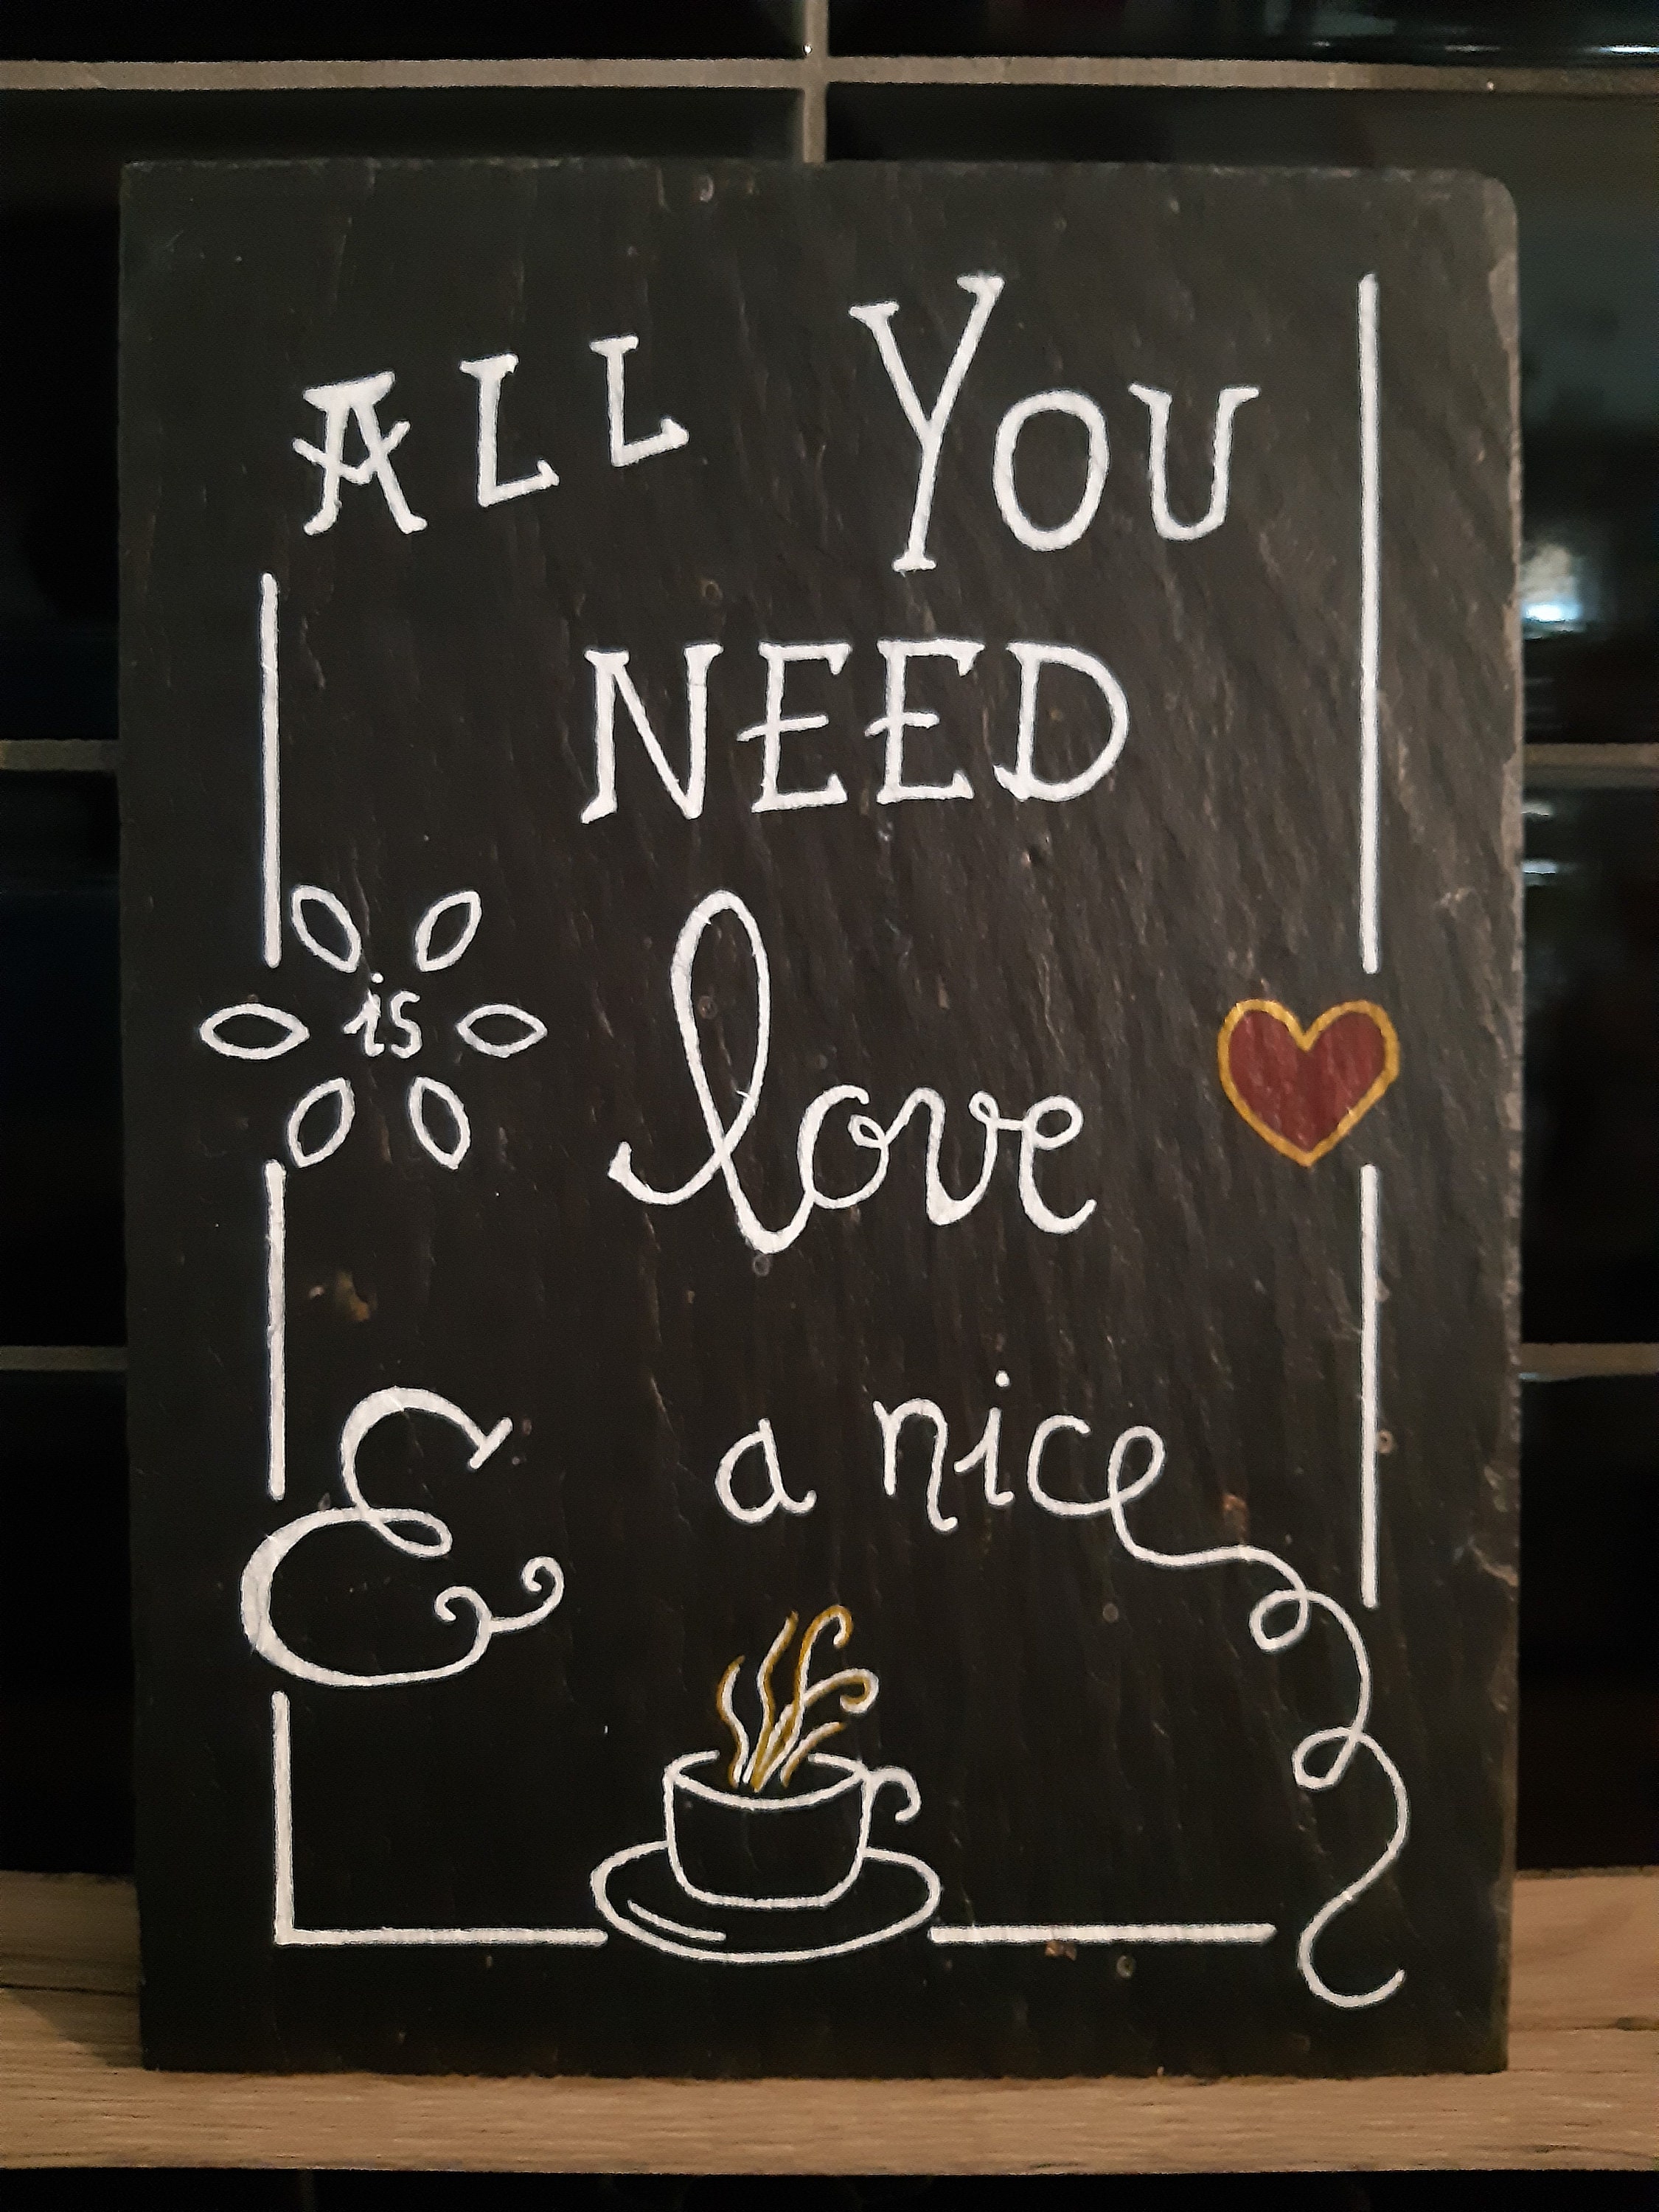 ALL YOU
NEED
is love
& a nice